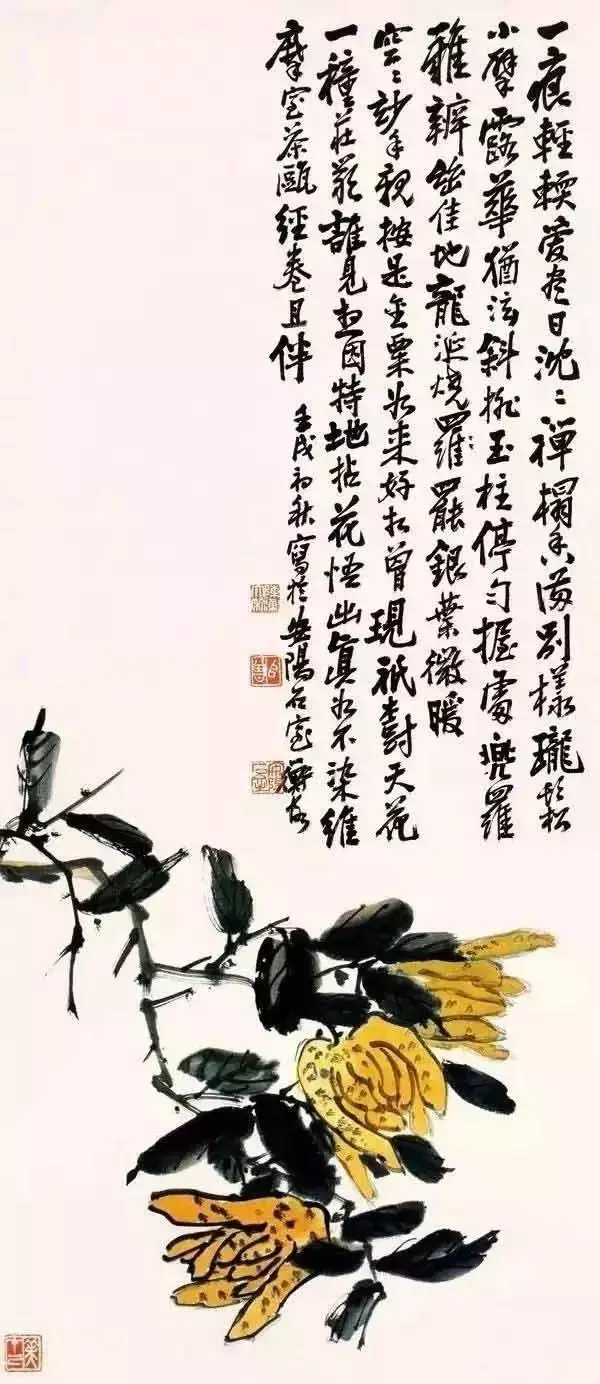 一痕輕輭愛盡日沈〻禪榻香滿別樣瓏鬆
小擘露華猶泫斜拖玉柱停勻握處兜羅
難辨絕佳地龍涎燒羅罷銀葉微暖
空〻妙手親按是金粟如來好相曾現祇樹天花
一種莊嚴誰見想因特地拈花悟出真如不染維
摩室茶甌經卷且伴
壬戌初秋寫於安陽石室